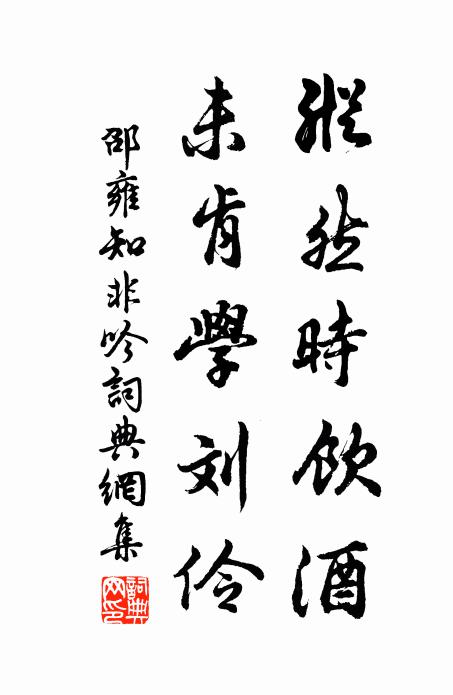 縱然時飲酒
未肯學刘伶
邵雍知非吟詞典網集
詞典網印